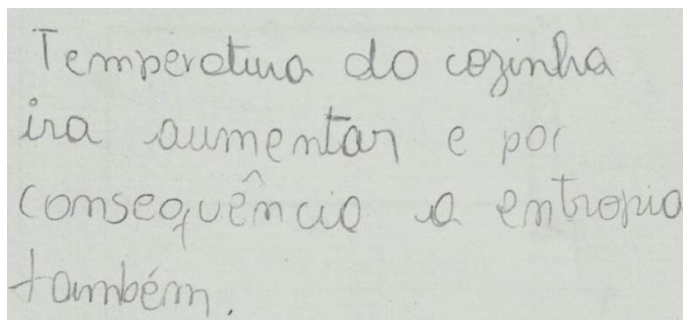 Temperatura do cozinha
ira aumentar e por
consequência a entropia
também.